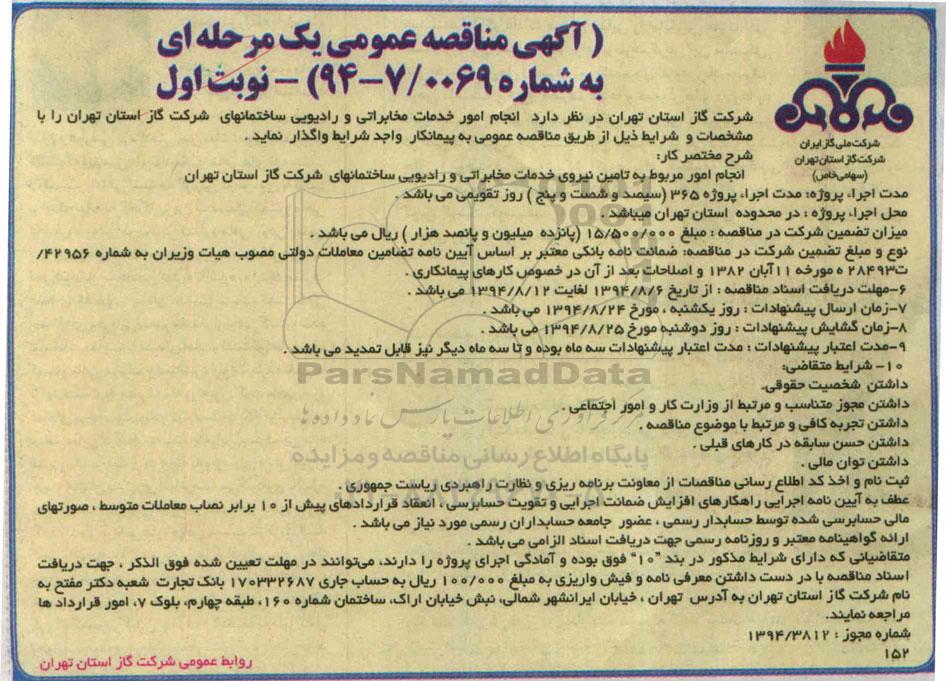 ( آگهی مناقصه عمومی یک مرحله ای
به شماره ۹۴-۷/۰۰۶۹) - نوبت اول
شرکت ملی گاز ایران
شرکت گاز استان تهران
(سهامی خاص)
شرکت گاز استان تهران در نظر دارد انجام امور خدمات مخابراتی و رادیویی ساختمانهای شرکت گاز استان تهران را با
مشخصات و شرایط ذیل از طریق مناقصه عمومی به پیمانکار واجد شرایط واگذار نماید .
شرح مختصر کار:
انجام امور مربوط به تامین نیروی خدمات مخابراتی و رادیویی ساختمانهای شرکت گاز استان تهران
مدت اجراء پروژه: مدت اجراء پروژه ۳۶۵ (سیصد و شصت و پنج ) روز تقویمی می باشد .
محل اجراء پروژه : در محدوده استان تهران میباشد .
میزان تضمین شرکت در مناقصه : مبلغ ۱۵/۵۰۰/۰۰۰ (پانزده میلیون و پانصد هزار ) ریال می باشد .
نوع و مبلغ تضمین شرکت در مناقصه: ضمانت نامه بانکی معتبر بر اساس آیین نامه تضامین معاملات دولتی مصوب هیات وزیران به شماره ۴۲۹۵۶/
ت۲۸۴۹۳ ه مورخه ۱۱آبان ۱۳۸۲ و اصلاحات بعد از آن در خصوص کارهای پیمانکاری .
۶-مهلت دریافت اسناد مناقصه : از تاریخ ۱۳۹۴/۸/۶ لغایت ۱۳۹۴/۸/۱۲ می باشد .
۷-زمان ارسال پیشنهادات : روز یکشنبه ، مورخ ۱۳۹۴/۸/۲۴ می باشد .
۸-زمان گشایش پیشنهادات : روز دوشنبه مورخ ۱۳۹۴/۸/۲۵ می باشد .
۹-مدت اعتبار پیشنهادات : مدت اعتبار پیشنهادات سه ماه بوده و تا سه ماه دیگر نیز قابل تمدید می باشد .
۱۰- شرایط متقاضی:
ParsNamadData
داشتن شخصیت حقوقی.
داشتن مجوز متناسب و مرتبط از وزارت کار و امور اجتماعی .
مرکز فرآوری اطلاعات پارس نماد داده ها
داشتن تجربه کافی و مرتبط با موضوع مناقصه .
داشتن حسن سابقه در کارهای قبلی .
پایگاه اطلاع رسانی مناقصه و مزایده
داشتن توان مالی .
ثبت نام و اخذ کد اطلاع رسانی مناقصات از معاونت برنامه ریزی و نظارت راهبردی ریاست جمهوری .
عطف به آیین نامه اجرایی راهکارهای افزایش ضمانت اجرایی و تقویت حسابرسی ، انعقاد قراردادهای پیش از ۱۰ برابر نصاب معاملات متوسط ، صورتهای
مالی حسابرسی شده توسط حسابدار رسمی ، عضور جامعه حسابداران رسمی مورد نیاز می باشد .
ارائه گواهینامه معتبر و روزنامه رسمی جهت دریافت اسناد الزامی می باشد .
متقاضیانی که دارای شرایط مذکور در بند "۱۰" فوق بوده و آمادگی اجرای پروژه را دارند، می‌توانند در مهلت تعیین شده فوق الذکر ، جهت دریافت
اسناد مناقصه با در دست داشتن معرفی نامه و فیش واریزی به مبلغ ۱۰۰/۰۰۰ ریال به حساب جاری ۱۷۰۳۳۲۶۸۷ بانک تجارت شعبه دکتر مفتح به
نام شرکت گاز استان تهران به آدرس تهران ، خیابان ایرانشهر شمالی، نبش خیابان اراک، ساختمان شماره ۱۶۰، طبقه چهارم، بلوک ۷، امور قرارداد ها
مراجعه نمایند.
شماره مجوز : ۱۳۹۴/۳۸۱۲
۱۵۲
روابط عمومی شرکت گاز استان تهران